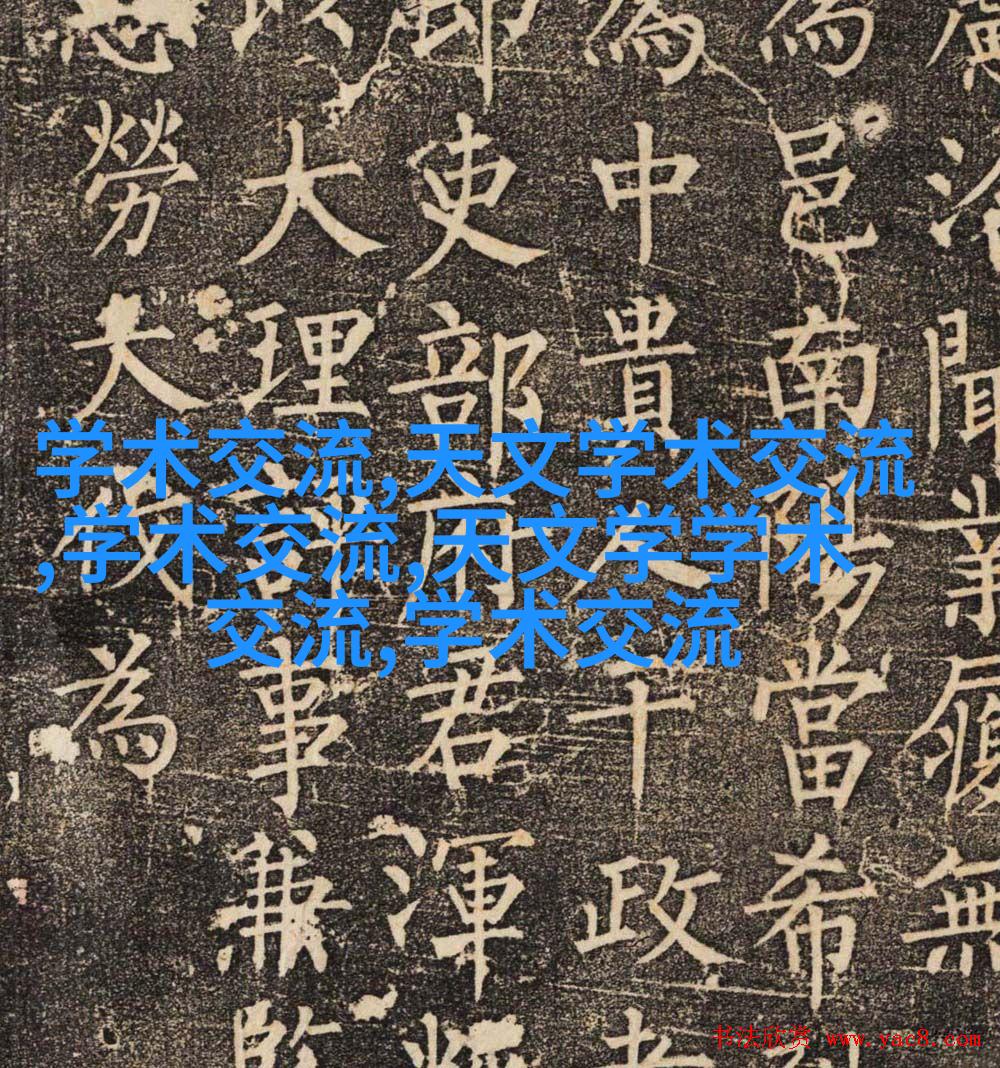 聞無
為邑南陽當希
為中貴人干政
郎吏部君渾
以大理評事兼監
勞大為
学术交流,天文学术交流
,学术交流,天文学学术
交流,学术交流
书法欣赏 www.yac8.com